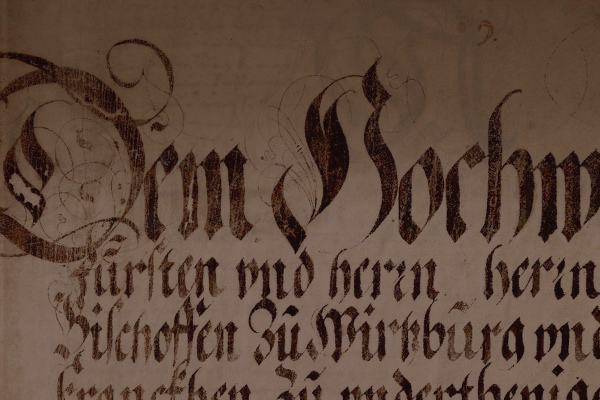 Dem Hochw
Fürsten vnd herrn herrn
Bischoffen Zů Wirtzburg vnd
franckhen Zů vnderthenige